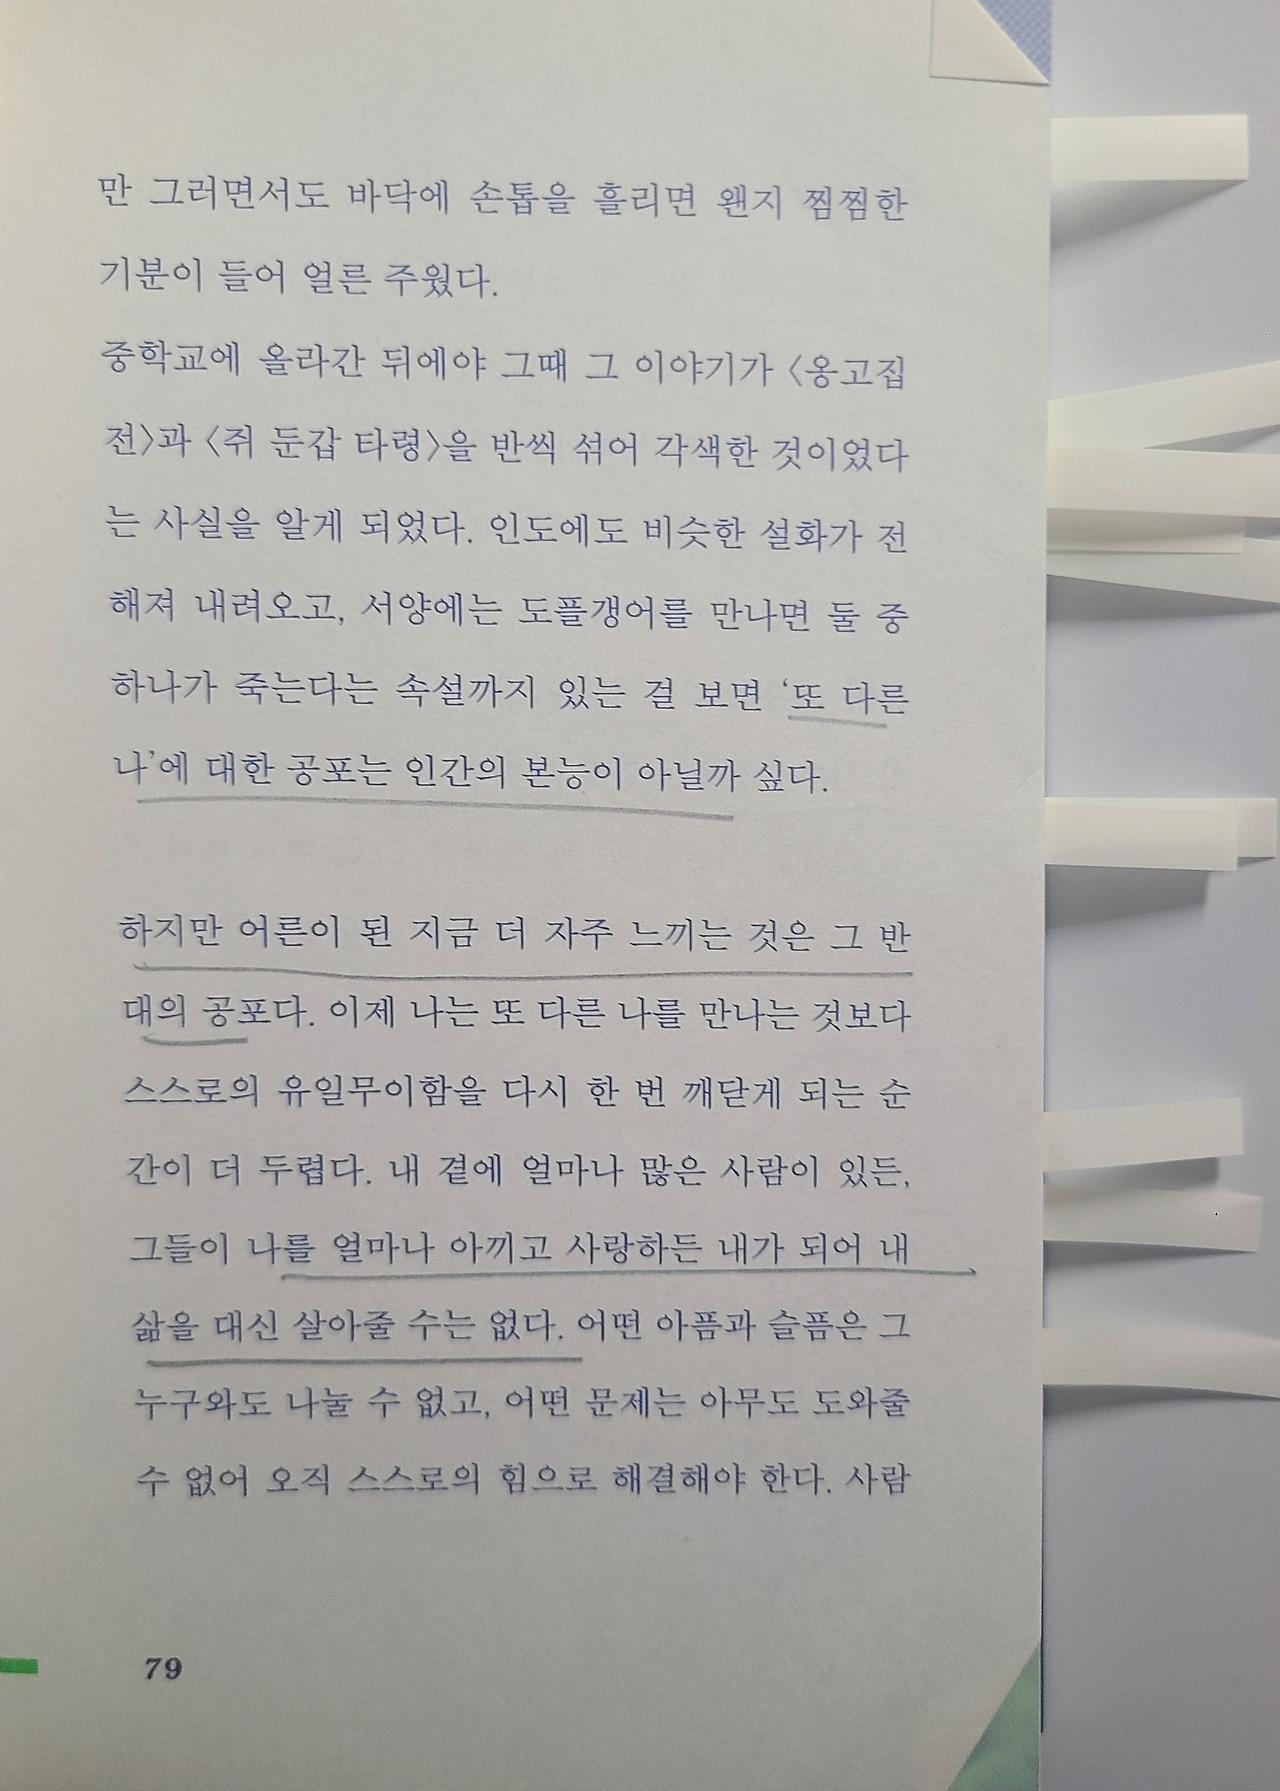 만 그러면서도 바닥에 손톱을 흘리면 왠지 찜찜한
기분이 들어 얼른 주웠다.
중학교에 올라간 뒤에야 그때 그 이야기가 〈옹고집
전〉과 〈쥐 둔갑 타령〉을 반씩 섞어 각색한 것이었다
는 사실을 알게 되었다. 인도에도 비슷한 설화가 전
해져 내려오고, 서양에는 도플갱어를 만나면 둘 중
하나가 죽는다는 속설까지 있는 걸 보면 ‘또 다른
나’에 대한 공포는 인간의 본능이 아닐까 싶다.
하지만 어른이 된 지금 더 자주 느끼는 것은 그 반
대의 공포다. 이제 나는 또 다른 나를 만나는 것보다
스스로의 유일무이함을 다시 한 번 깨닫게 되는 순
간이 더 두렵다. 내 곁에 얼마나 많은 사람이 있든,
그들이 나를 얼마나 아끼고 사랑하든 내가 되어 내
삶을 대신 살아줄 수는 없다. 어떤 아픔과 슬픔은 그
누구와도 나눌 수 없고, 어떤 문제는 아무도 도와줄
수 없어 오직 스스로의 힘으로 해결해야 한다. 사람
79